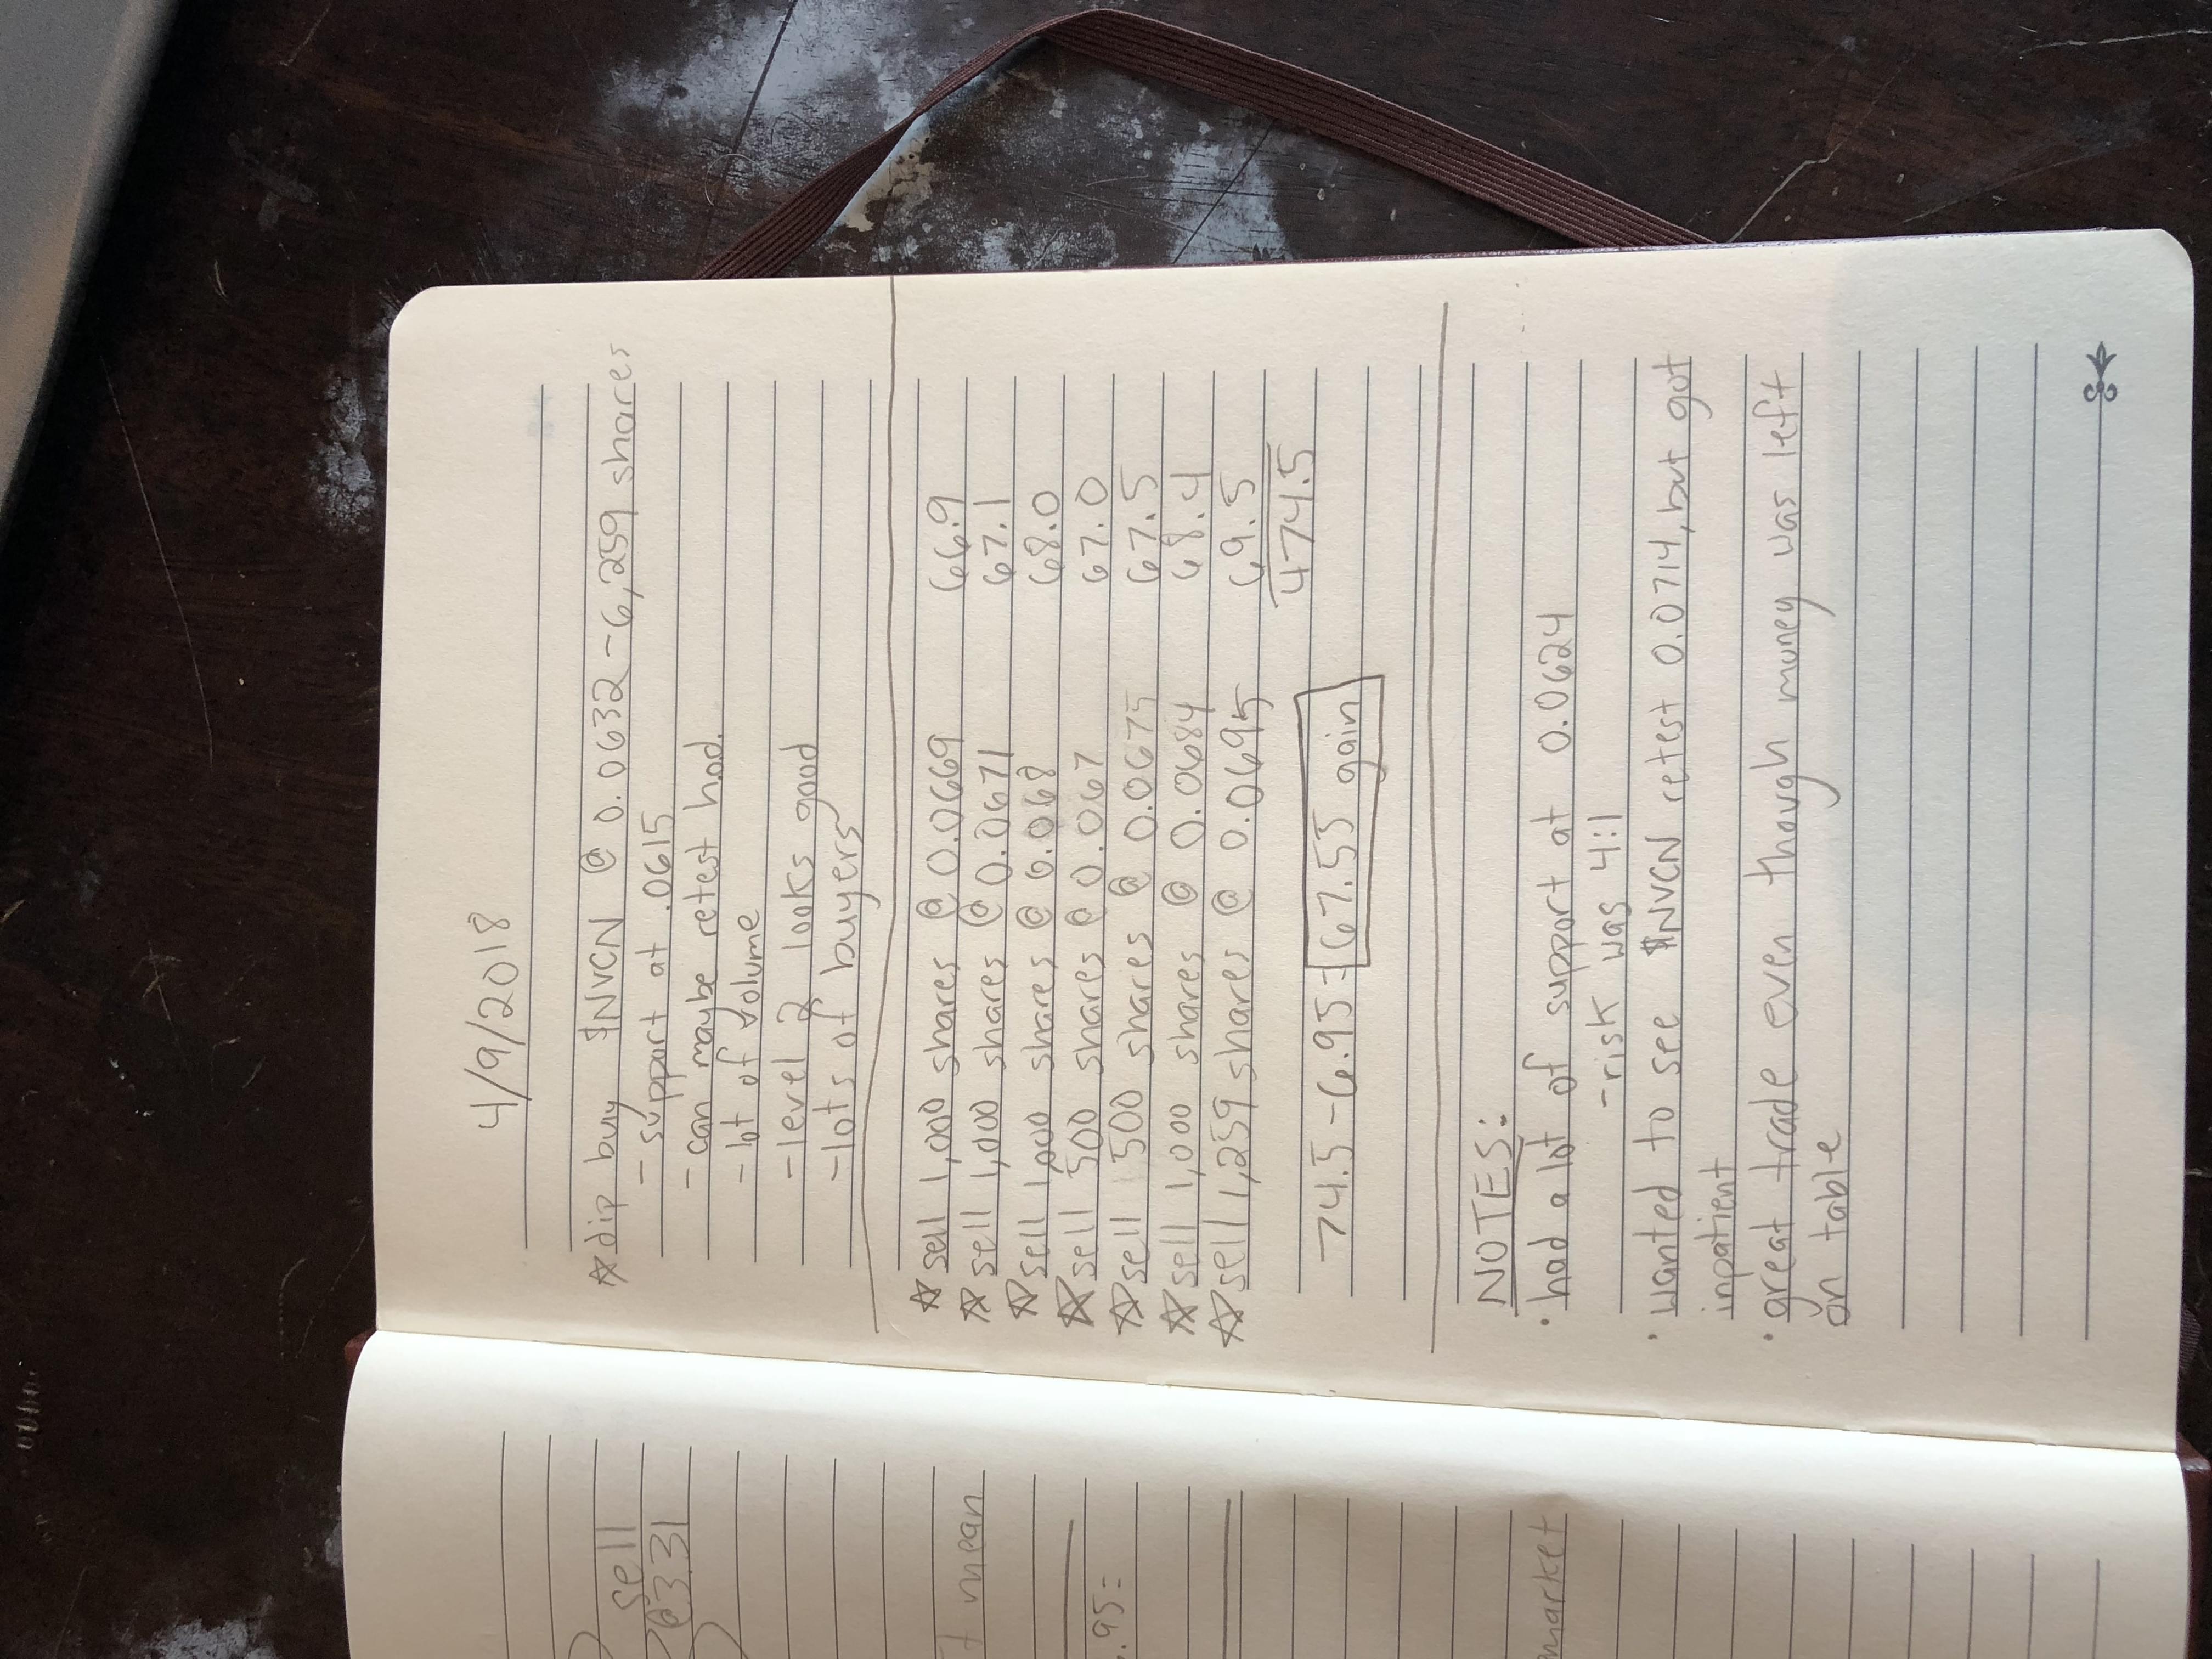 sell
@3.31
mean
.95=
market
4/9/2018
☆dip buy $NVCN @ 0.0632 - 6,259 shares
- support at .0615
- can maybe retest hod.
- lot of volume
- level 2 looks good
- lots of buyers
☆ sell 1,000 shares @ 0.0669 66.9
☆ sell 1,000 shares @ 0.0671 67.1
☆ sell 1,000 shares @ 0.068 68.0
☆ sell 500 shares @ 0.067 67.0
☆ sell 500 shares @ 0.0675 67.5
☆ sell 1,000 shares @ 0.0684 68.4
☆ sell 1,259 shares @ 0.0695 69.5
474.5
74.5 - 6.95 = 67.55 gain
NOTES:
· had a lot of support at 0.0624
- risk was 4:1
· wanted to see $NVCN retest 0.0714, but got
inpatient
· great trade even though money was left
on table